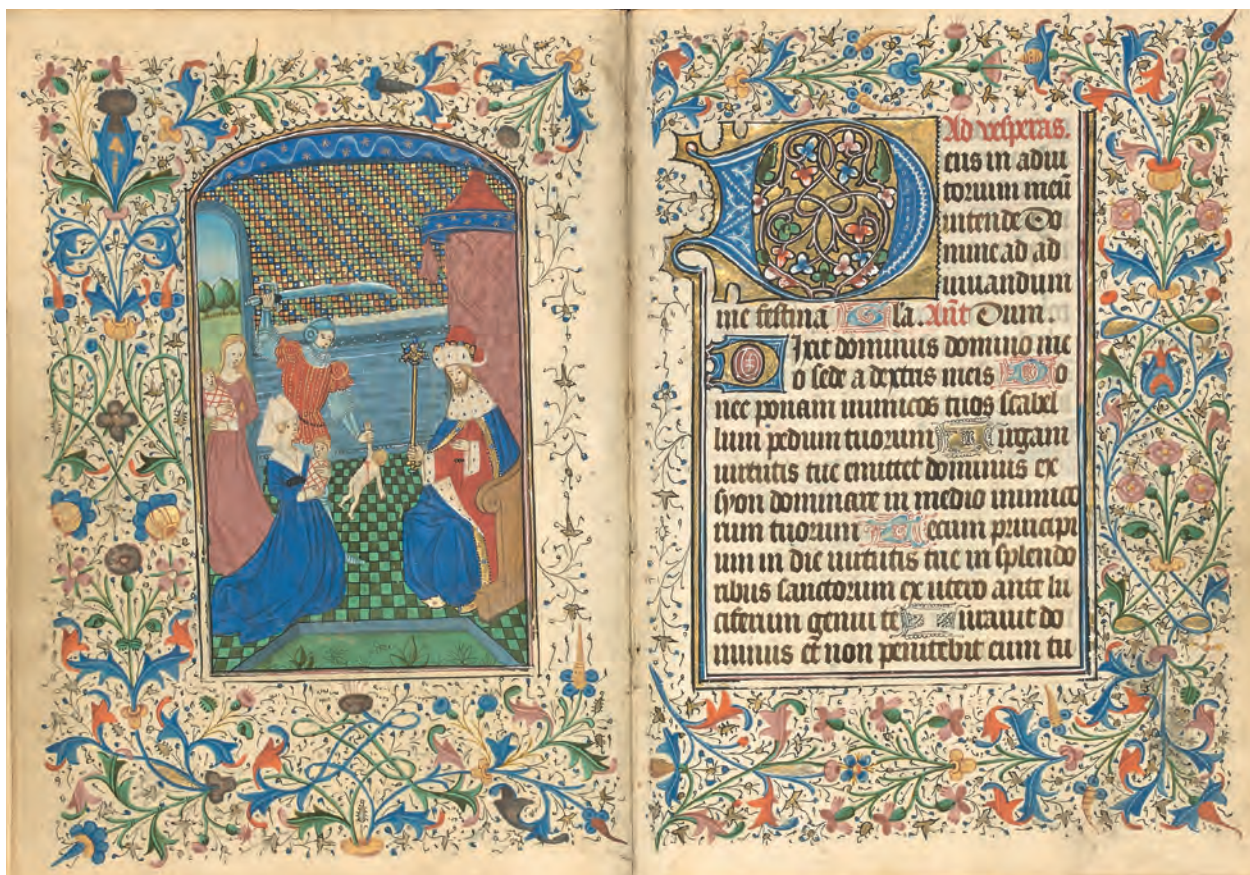 Ad vesperas.
Deus in adiu
torium meū
intende Do
mine ad ad
iuuandum
me festina Gla. Añt Dum.
Dixit dominus domino me
o sede a dextris meis Do
nec ponam inimicos tuos scabel
lum pedum tuorum Virgam
uirtutis tue emittet dominus ex
syon dominare in medio inimico
rum tuorum Tecum principi
um in die uirtutis tue in splendo
ribus sanctorum ex utero ante lu
ciferum genui te Iurauit do
minus et non penitebit eum tu